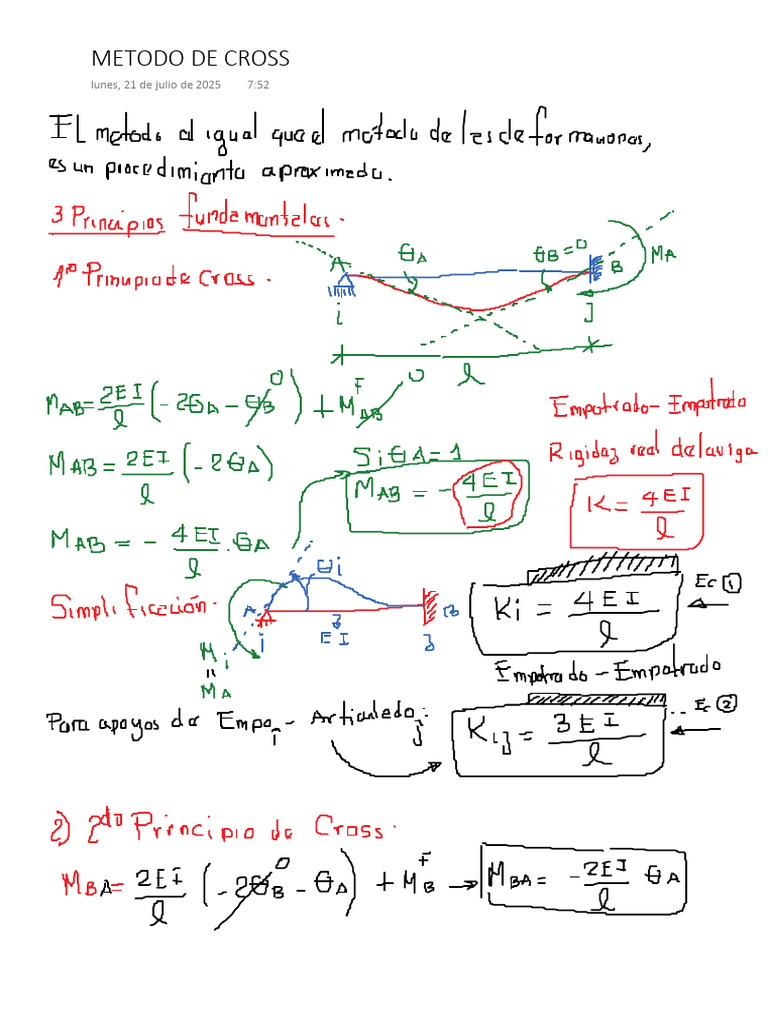 METODO DE CROSS
lunes, 21 de julio de 2025 7:52
EL metodo al igual que el metodo de las deformaciones,
es un procedimiento aproximado.
3 Principios fundamentales.
1ro Principio de Cross.
A θA θB = 0 B MA
i J
l
MAB = 2EI/l (-2θA - θB 0) + MAB F 0
Empotrado - Empotrado
Si θA = 1
Rigidez real de la viga
MAB = 2EI/l (-2θA)
MAB = - 4EI/l
K = 4EI/l
MAB = - 4EI/l . θA
Simplificación.
A θi B
i EI J
Mi
"
MA
Ki = 4EI/l Ec ①
Empotrado - Empotrado
Para apoyos de Empo i - Articulado J:
Kij = 3EI/l Ec ②
2) 2do Principio de Cross.
MBA = 2EI/l (-2θB 0 - θA) + MB F → MBA = - 2EI/l θA